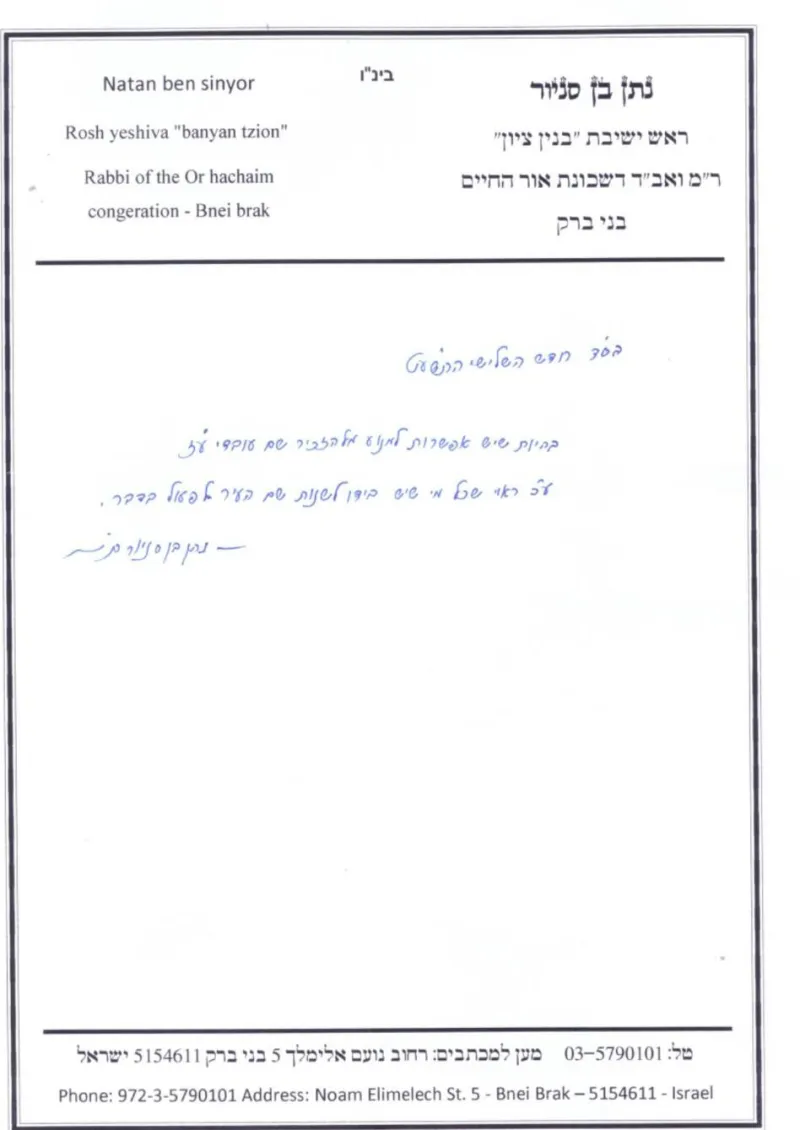 בינ"ו
Natan ben sinyor
Rosh yeshiva "banyan tzion"
Rabbi of the Or hachaim
congeration - Bnei brak
נתן בן סניור
ראש ישיבת "בנין ציון"
ר"מ ואב"ד דשכונת אור החיים
בני ברק
בס"ד חדש השלישי התשע"ט
בהיות שיש אפשרות למנוע מלהזכיר שם עובדי ע"ז
ע"כ ראוי שכל מי שיש בידו לשנות שם העיר לפעול בדבר.
נתן בן סניור
טל: 03-5790101 מען למכתבים: רחוב נועם אלימלך 5 בני ברק 5154611 ישראל
Phone: 972-3-5790101 Address: Noam Elimelech St. 5 - Bnei Brak – 5154611 - Israel